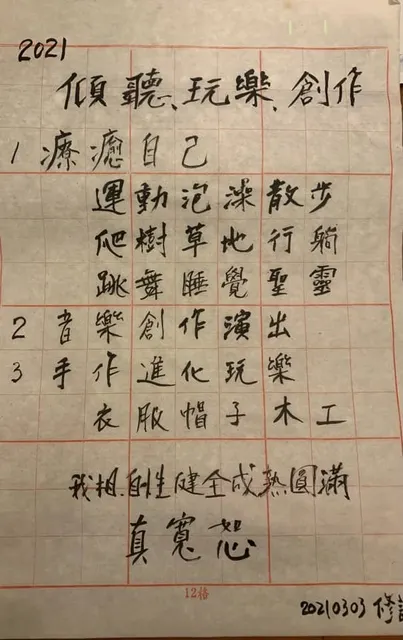 2021
傾聽、玩樂、創作
1 療癒自己
運動泡澡散步
爬樹草地行躺
跳舞睡覺聖靈
2 音樂創作演出
3 手作進化玩樂
衣服帽子木工
我相.自性健全成熟圓滿
真寬恕
12格
20210303 修